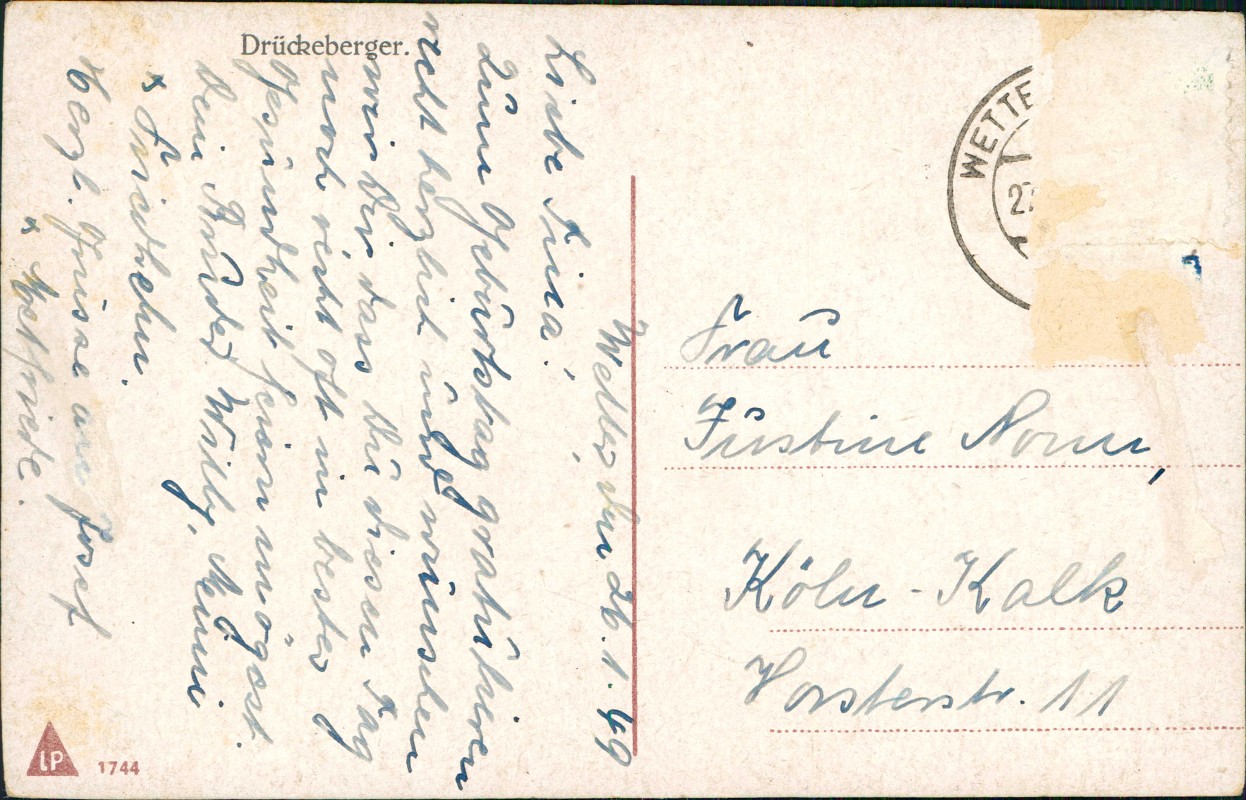 Drückeberger.
Wetter, den 26.1.49
Liebe Tina!
Zum Geburtstag gratulieren
recht herzlich und wünschen
wir Dir, dass Du diesen Tag
noch recht oft in bester
Gesundheit feiern mögest.
Dein Bruder Willy, Änni
+ Friedhelm.
Herzl. Grüsse an Josef
+ Hetfriede.
WETTE
27
Frau
Justine Nonn,
Köln-Kalk
Vorsterstr. 11
LP 1744